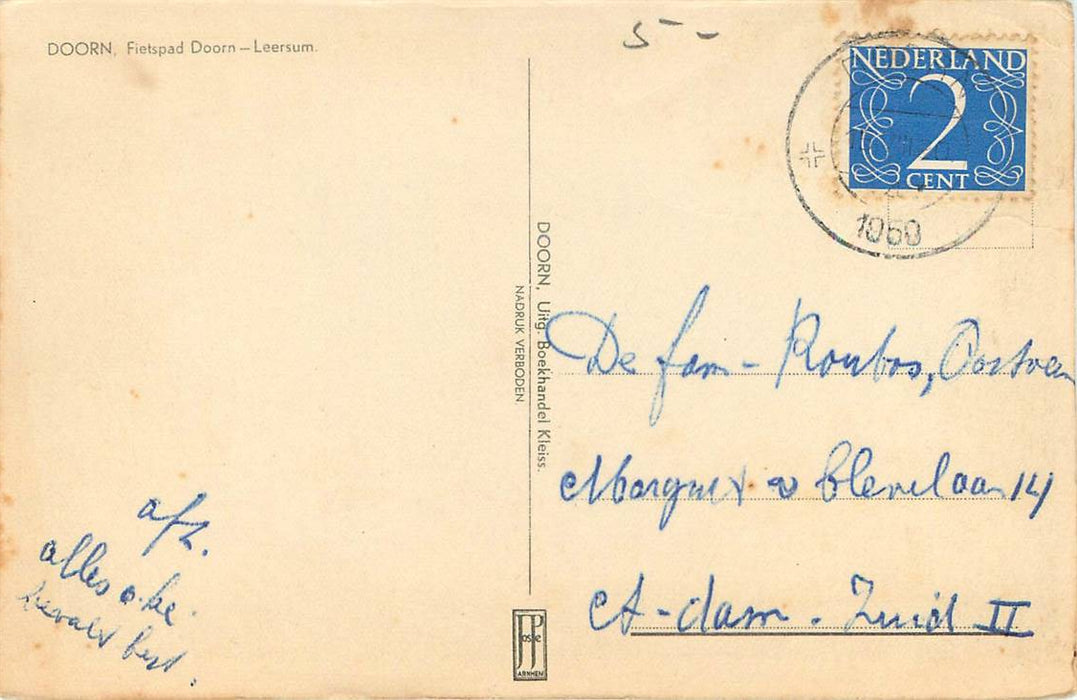 DOORN, Fietspad Doorn – Leersum.
5 -
NEDERLAND
2
CENT
DOORN
1960
DOORN, Uitg. Boekhandel Kleiss.
NADRUK VERBODEN
De fam - Roubos, Oostveen
Margriet v Clevelaan 14
A-dam. Zuid II
afz.
alles o.ke.
bevalt best.
JosPé
ARNHEM